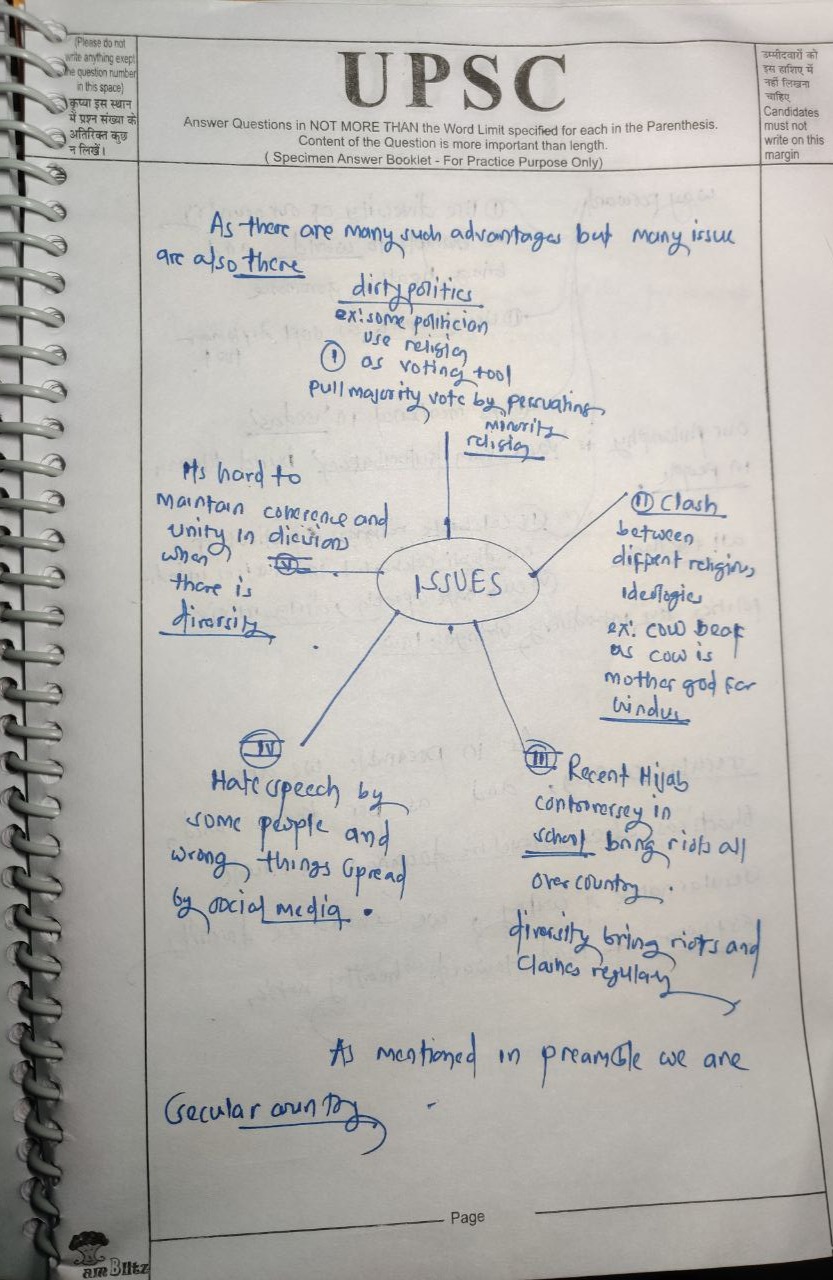 (Please do not
write anything exept
the question number
in this space)
कृप्या इस स्थान
में प्रश्न संख्या के
अतिरिक्त कुछ
न लिखें।
UPSC
Answer Questions in NOT MORE THAN the Word Limit specified for each in the Parenthesis.
Content of the Question is more important than length.
( Specimen Answer Booklet - For Practice Purpose Only)
उम्मीदवारों को
इस हाशिए में
नहीं लिखना
चाहिए
Candidates
must not
write on this
margin
As there are many such advantages but many issue
are also there
dirty politics
ex: some politician
use religion
① as voting tool
pull majority vote by persuating
minority
religion
Its hard to
maintain coherence and
unity in
when
there is
diversity
ISSUES
II Clash
between
different religions,
ideologies
ex: cow beaf
as cow is
mother god for
hindus
IV
Hate speech by
some people and
wrong things spread
by social media.
III Recent Hijab
controversey in
school bring riots all
over country.
diversity bring riots and
clashes regulary
As mentioned in preamble we are
secular country
Page
am Blitz